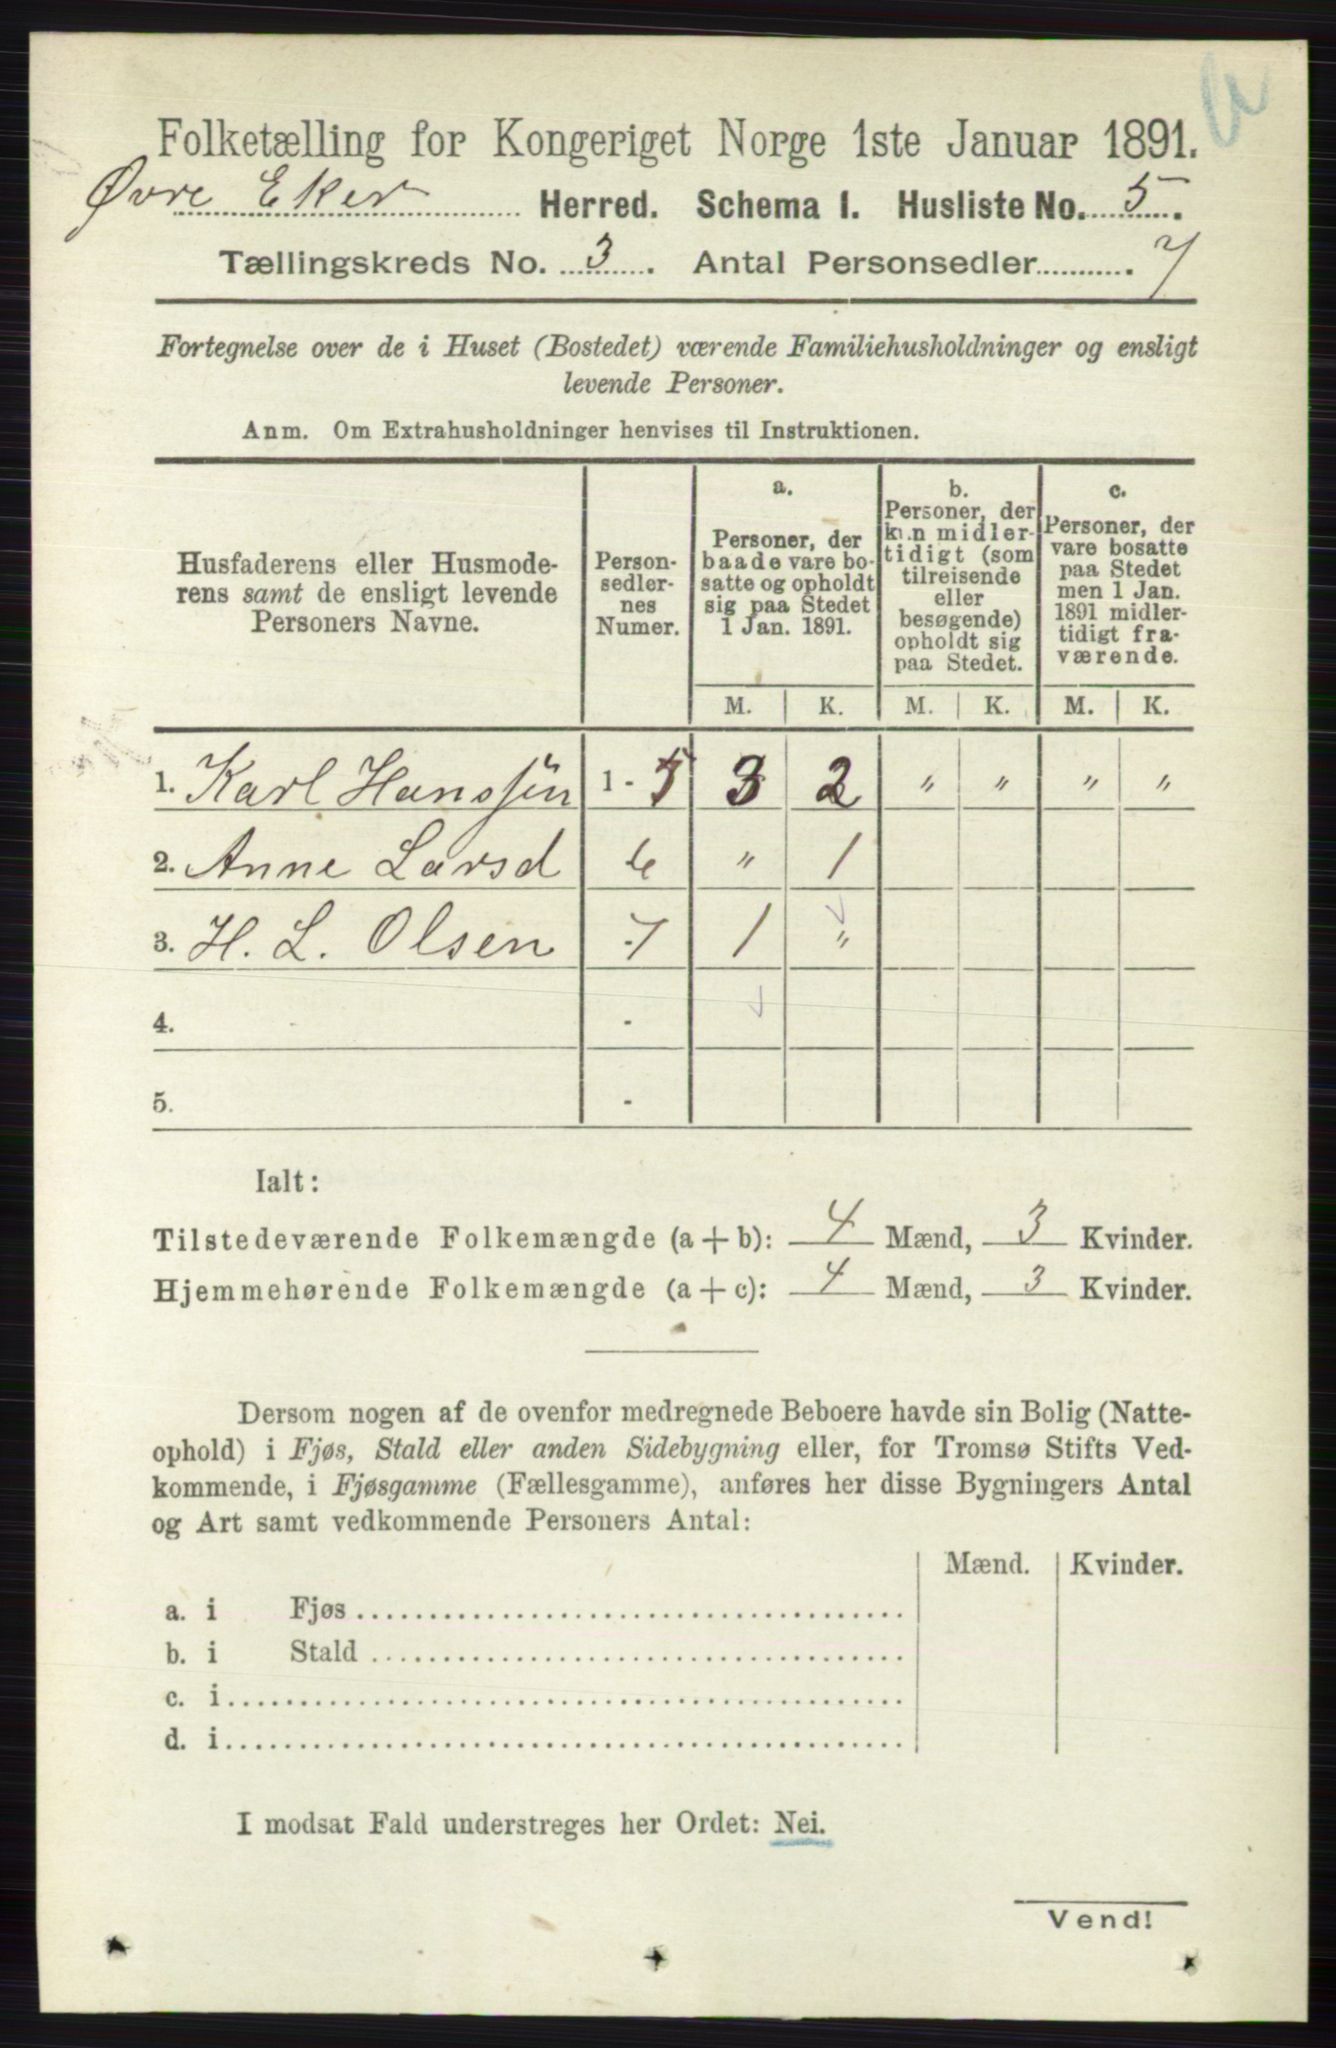 Folketælling for Kongeriget Norge 1ste Januar 1891.
Øvre Eker Herred. Schema I. Husliste No. 5.
Tællingskreds No. 3. Antal Personsedler 7
Fortegnelse over de i Huset (Bostedet) værende Familiehusholdninger og ensligt
levende Personer.
Anm. Om Extrahusholdninger henvises til Instruktionen.
Husfaderens eller Husmode-
rens samt de ensligt levende
Personers Navne.
Person-
sedler-
nes
Numer.
a.
Personer, der
baade vare bo-
satte og opholdt
sig paa Stedet
1 Jan. 1891.
b.
Personer, der
kun midler-
tidigt (som
tilreisende
eller
besøgende)
opholdt sig
paa Stedet.
c.
Personer, der
vare bosatte
paa Stedet
men 1 Jan.
1891 midler-
tidigt fra-
værende.
M. K. M. K. M. K.
1. Karl Hanssen 1 - 5 3 2 " " " "
2. Anne Larsd 6 " 1
3. H. L. Olsen - 7 1 "
4. -
5. -
Ialt:
Tilstedeværende Folkemængde (a + b): 4 Mænd, 3 Kvinder.
Hjemmehørende Folkemængde (a + c): 4 Mænd, 3 Kvinder.
Dersom nogen af de ovenfor medregnede Beboere havde sin Bolig (Natte-
ophold) i Fjøs, Stald eller anden Sidebygning eller, for Tromsø Stifts Ved-
kommende, i Fjøsgamme (Fællesgamme), anføres her disse Bygningers Antal
og Art samt vedkommende Personers Antal:
Mænd. Kvinder.
a. i Fjøs
b. i Stald
c. i
d. i
I modsat Fald understreges her Ordet: Nei.
Vend!